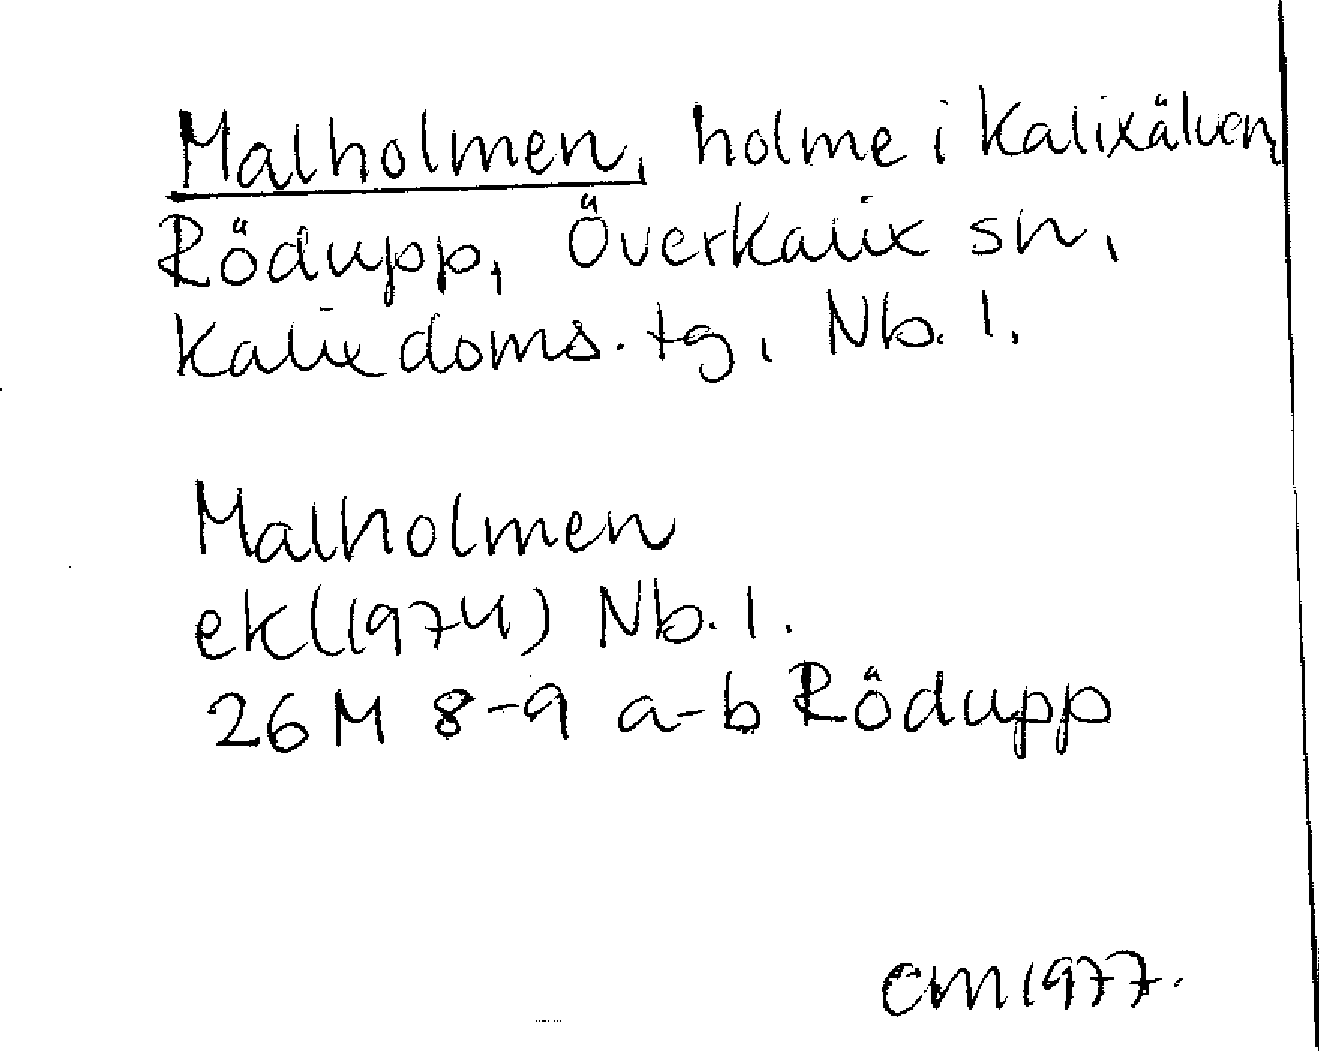 Malholmen, holme i Kalixälven,
Rödupp, Överkalix sn,
Kalix doms. tg, Nb. l.
Malholmen
ek (1974) Nb. l.
26 M 8-9 a-b Rödupp
CM 1977.